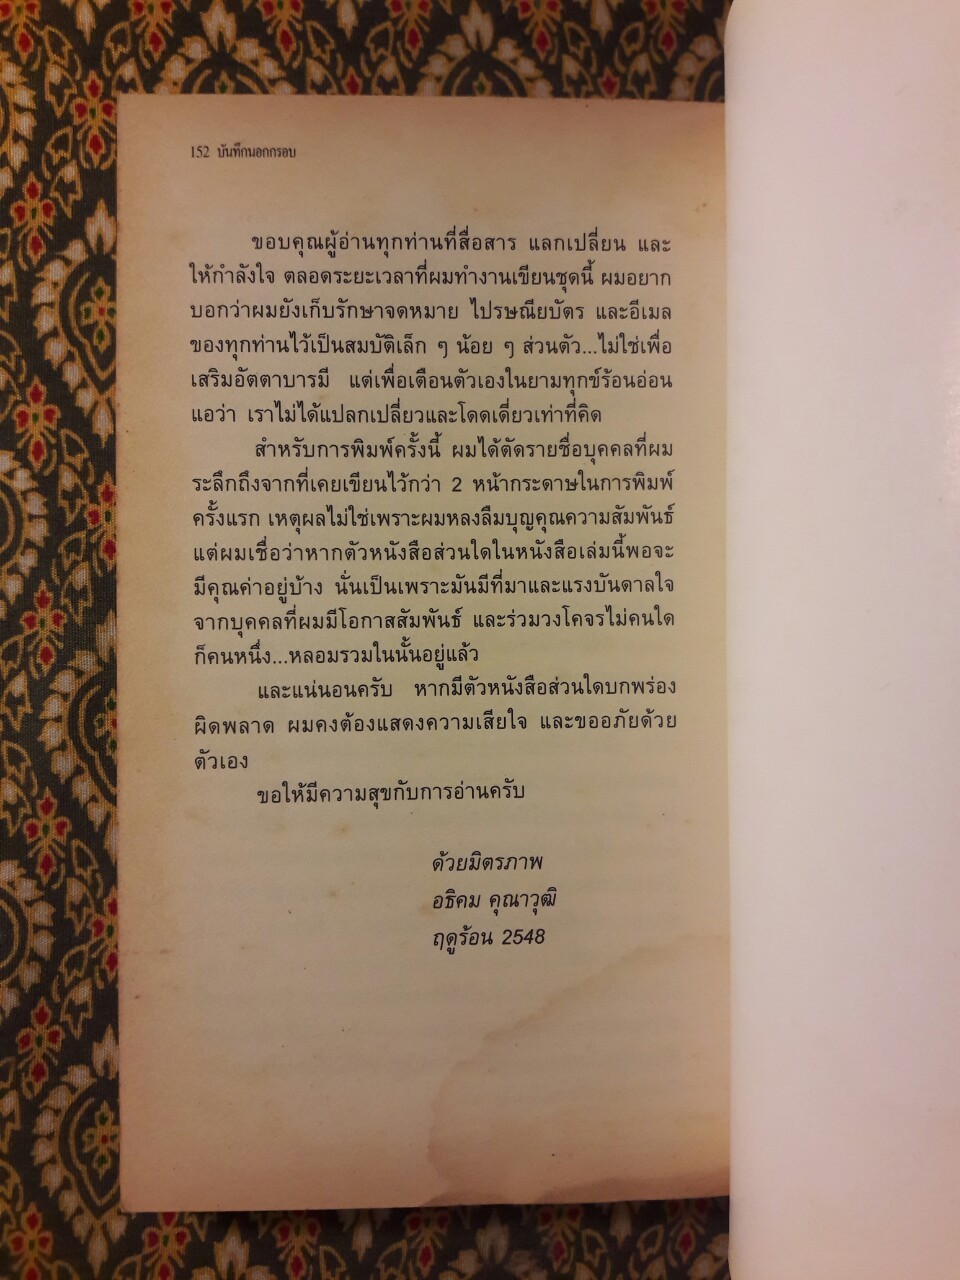 152 บันทึกนอกกรอบ
ขอบคุณผู้อ่านทุกท่านที่สื่อสาร แลกเปลี่ยน และ
ให้กำลังใจ ตลอดระยะเวลาที่ผมทำงานเขียนชุดนี้ ผมอยาก
บอกว่าผมยังเก็บรักษาจดหมาย ไปรษณียบัตร และอีเมล
ของทุกท่านไว้เป็นสมบัติเล็ก ๆ น้อย ๆ ส่วนตัว...ไม่ใช่เพื่อ
เสริมอัตตาบารมี แต่เพื่อเตือนตัวเองในยามทุกข์ร้อนอ่อน
แอว่า เราไม่ได้แปลกเปลี่ยวและโดดเดี่ยวเท่าที่คิด
สำหรับการพิมพ์ครั้งนี้ ผมได้ตัดรายชื่อบุคคลที่ผม
ระลึกถึงจากที่เคยเขียนไว้กว่า 2 หน้ากระดาษในการพิมพ์
ครั้งแรก เหตุผลไม่ใช่เพราะผมหลงลืมบุญคุณความสัมพันธ์
แต่ผมเชื่อว่าหากตัวหนังสือส่วนใดในหนังสือเล่มนี้พอจะ
มีคุณค่าอยู่บ้าง นั่นเป็นเพราะมันมีที่มาและแรงบันดาลใจ
จากบุคคลที่ผมมีโอกาสสัมพันธ์ และร่วมวงโคจรไม่คนใด
ก็คนหนึ่ง...หลอมรวมในนั้นอยู่แล้ว
และแน่นอนครับ หากมีตัวหนังสือส่วนใดบกพร่อง
ผิดพลาด ผมคงต้องแสดงความเสียใจ และขออภัยด้วย
ตัวเอง
ขอให้มีความสุขกับการอ่านครับ
ด้วยมิตรภาพ
อธิคม คุณาวุฒิ
ฤดูร้อน 2548